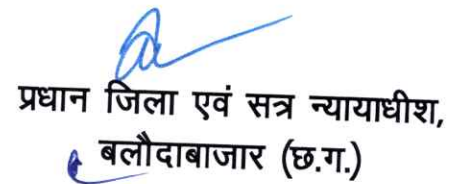 प्रधान जिला एवं सत्र न्यायाधीश,
बलौदाबाजार (छ.ग.)